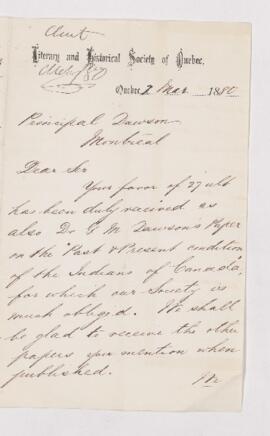 Literary and Historical Society of Quebec.
Quebec, 2 Mar 1880
Principal Dawson
Montreal
Dear Sir
Your favor of 27 ult
has been duly recieved as
also Dr G. M. Dawson's Paper
on the "Past & Present condition
of the Indians of Canada",
for which our Society is
much obliged. We shall
be glad to receive the other
papers you mention when
published.
We